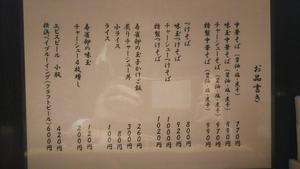 お品書き
中華そば（醤油・塩・煮干）　７７０円
味玉中華そば（醤油・塩・煮干）　８９０円
チャーシュー中華そば（醤油・塩・煮干）　９９０円
特製中華そば（醤油・塩・煮干）　９９０円
つけそば　８００円
味玉つけそば　９２０円
チャーシューつけそば　１０００円
特製つけそば　１０２０円
寿雀卵の玉子かけご飯　２６０円
炙りチャーシュー丼　３００円
小ライス　８０円
ライス　１００円
寿雀卵の味玉　１２０円
チャーシュー４枚増し　２００円
エビスビール　小瓶　４２０円
横浜ベイブルーイング（クラフトビール）　６００円